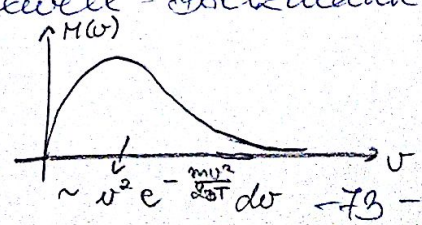 M(v)
v
~ v² e^{-\frac{mv²}{2kT}} dv -73-